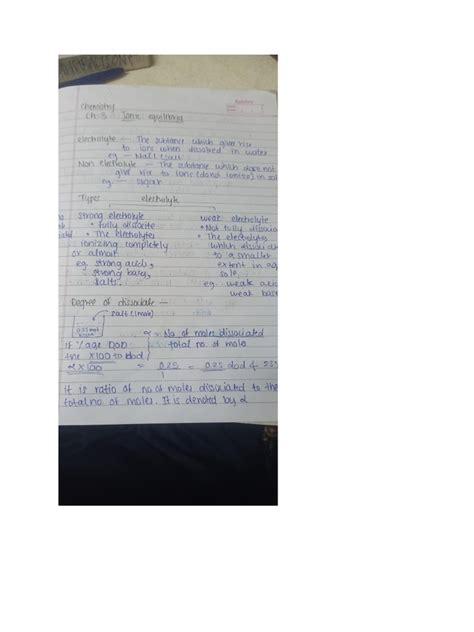 Chemistry
Ch-3 Ionic equilibria
electrolyte — The subtance which give rise
to ions when dissolved in water
eg — NaCl (salt
Non Electrolyte — The substance which does not
give rise to ions (dont ionise) in sol
eg. — sugar
Types electrolyte
strong electrolyte
weak electrolyte
• fully dissocite
• Not fully dissocia
• The electrolytes
• The electrolytes
ionizing completely
which dissociate
or almost
to a smaller
eg. strong acids,
extent in aq
strong bases,
sole.
salts.
eg. weak acid
weak base
Degree of dissociate —
salt (1mol)
0.25 mol
α = No of moles dissociated
total no. of mole
if %age DOD
the X100 to dod
α X 100 = 0.25 = 0.25 dod & 25%
1
it is ratio of no of moles dissociated to the
total no of moles. It is denoted by α